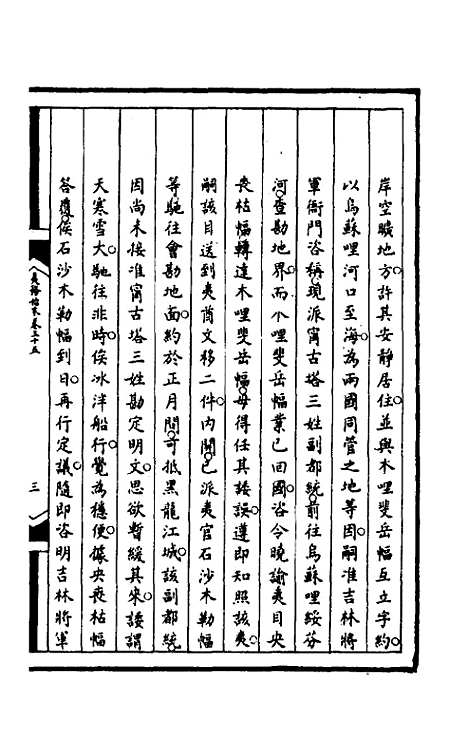 岸空曠地方許其安靜居住並與木哩斐岳幅互立字約
以烏蘇哩河口至海為兩國同管之地等因嗣准吉林將
軍衙門咨稱現派甯古塔三姓副都統前往烏蘇哩綏芬
河查勘地界而木哩斐岳幅業已回國咨令曉諭夷目央
喪枯幅轉達木哩斐岳幅毋得任其諉誤遵即知照該夷
嗣該目送到夷酋文移二件內開已派夷官石沙木勒幅
等馳往會勘地面約於正月間可抵黑龍江城該副都統
因尚未接准甯古塔三姓勘定明文思欲暫緩其來諉謂
天寒雪大馳往非時俟冰泮船行覺為穩便據央喪枯幅
答覆俟石沙木勒幅到日再行定議隨即咨明吉林將軍
三